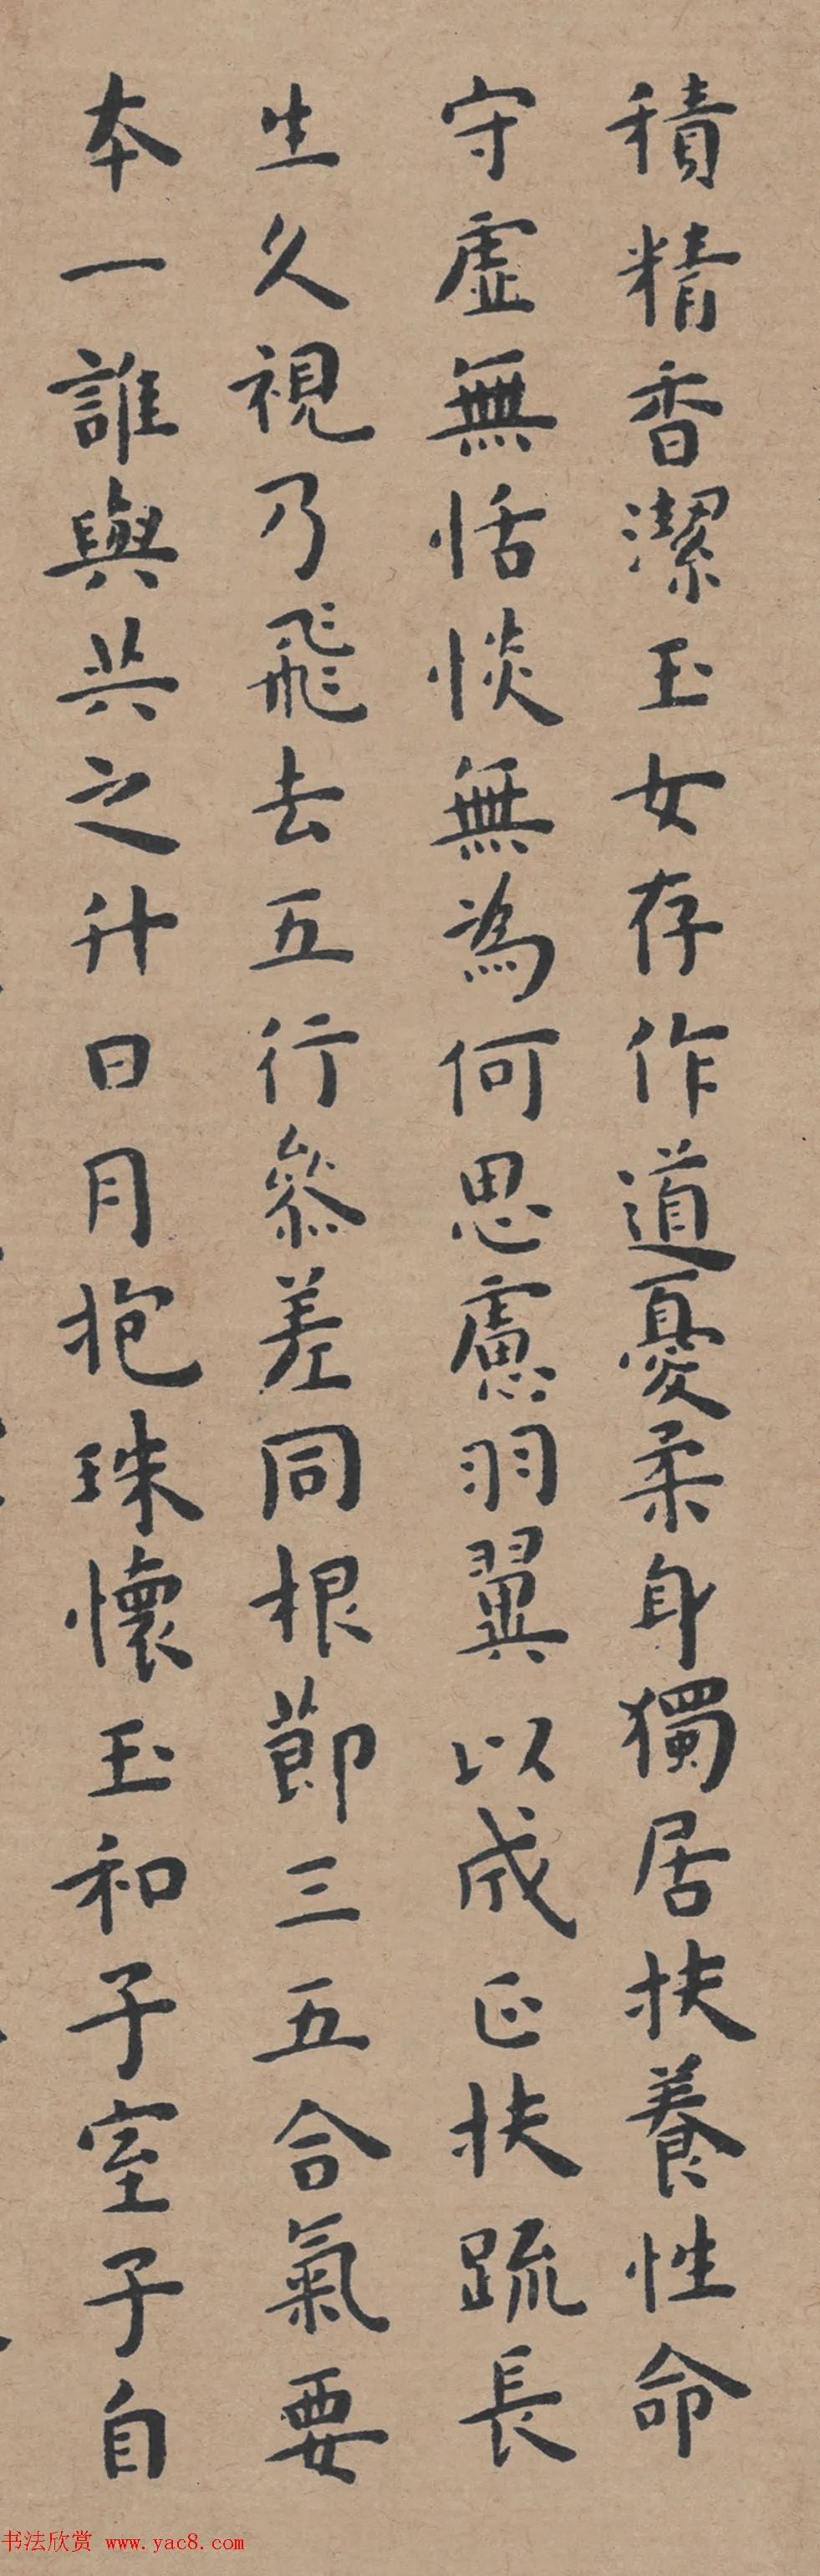 積精香潔玉女存作道憂柔身獨居扶養性命
守虛無恬惔無為何思慮羽翼以成正扶疏長
生久視乃飛去五行參差同根節三五合氣要
本一誰與共之升日月抱珠懷玉和子室子自
书法欣赏 www.yac8.com